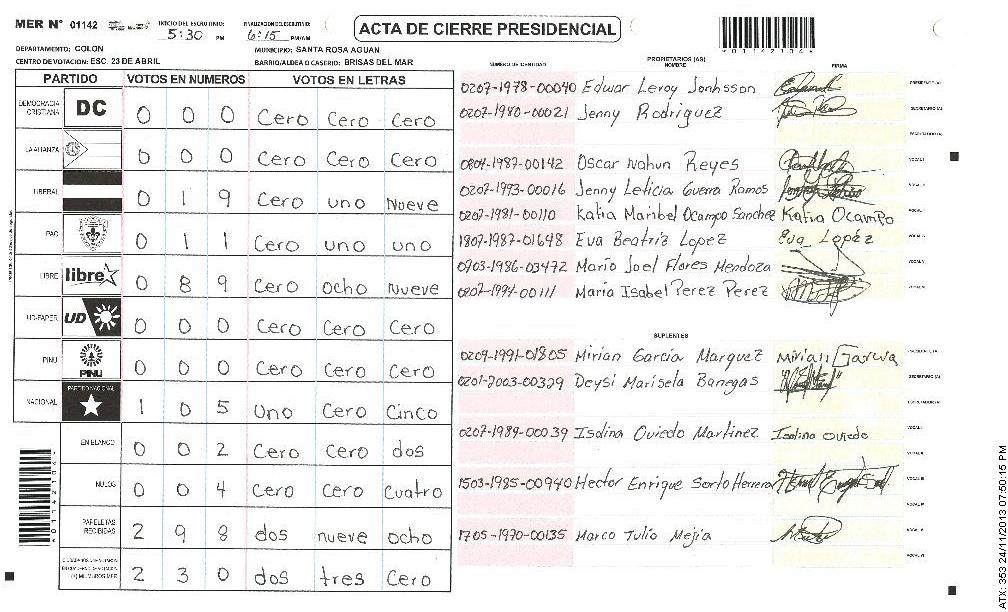 MER N° 01142
INICIO DEL ESCRUTINIO: 5:30 PM
FINALIZACION DEL ESCRUTINIO: 6:15 PM/AM
ACTA DE CIERRE PRESIDENCIAL
DEPARTAMENTO: COLON
MUNICIPIO: SANTA ROSA AGUAN
CENTRO DE VOTACION: ESC. 23 DE ABRIL
BARRIO/ALDEA O CASERIO: BRISAS DEL MAR
PARTIDO VOTOS EN NUMEROS VOTOS EN LETRAS
DEMOCRACIA CRISTIANA DC 0 0 0 Cero Cero Cero
LA ALIANZA 0 0 0 Cero Cero Cero
LIBERAL 0 1 9 Cero uno Nueve
PAC 0 1 1 Cero uno uno
LIBRE libre 0 8 9 Cero ocho Nueve
UD-FAPER UD 0 0 0 Cero Cero Cero
PINU PINU 0 0 0 Cero Cero Cero
NACIONAL PARTIDO NACIONAL 1 0 5 Uno Cero Cinco
EN BLANCO 0 0 2 Cero Cero dos
NULOS 0 0 4 Cero Cero Cuatro
PAPELETAS RECIBIDAS 2 9 8 dos nueve ocho
2 3 0 dos tres Cero
NUMERO DE IDENTIDAD PROPIETARIOS (AS) NOMBRE FIRMA
0207-1978-00040 Edwar Leroy Jonhsson PRESIDENTE (A)
0207-1980-00021 Jenny Rodriguez SECRETARIO (A)
ESCRUTADOR (A)
0804-1987-00142 Oscar Nahun Reyes VOCAL I
0207-1993-00016 Jenny Leticia Guerra Ramos VOCAL II
0207-1981-00110 Katia Maribel Ocampo Sanchez Katia Ocampo
1807-1987-01648 Eva Beatriz Lopez Eva Lopéz
0903-1986-03472 Mario Joel Flores Mendoza
0207-1994-00111 Maria Isabel Perez Perez
SUPLENTES
0209-1991-01805 Mirian Garcia Marquez Mirian Garcia
0201-2003-00329 Deysi Marisela Banegas SECRETARIO (A)
ESCRUTADOR (A)
0207-1989-00039 Isolina Oviedo Martinez Isolina Oviedo VOCAL I
1503-1985-00940 Hector Enrique Sorto Herrera
1705-1970-00135 Marco Tulio Mejia
ATX: 353 24/11/2013 07:50:15 PM